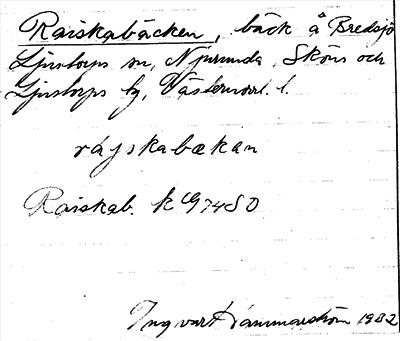 Raiskabäcken, bäck å Bredsjö
Ljustorps sn, Njurunda, Sköns och
Ljustorps tg, Västernorrl. l.
rájskabækan
Raiskab. k G 74 SO
Ingvar Hammarström 1932